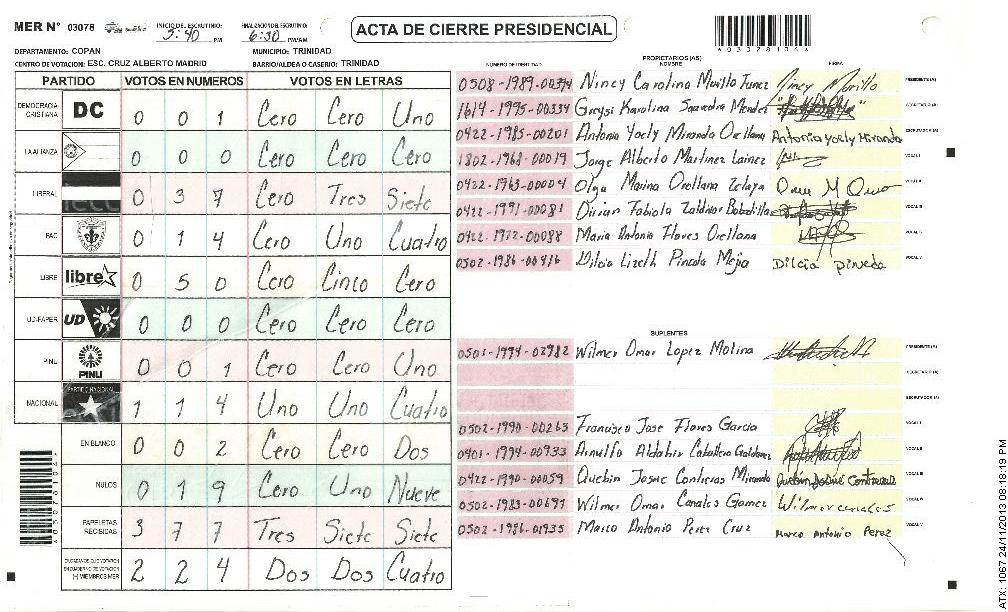 MER N° 03078 INICIO DEL ESCRUTINIO: 5:40 PM FINALIZACION DEL ESCRUTINIO: 6:30 PM/AM
ACTA DE CIERRE PRESIDENCIAL
DEPARTAMENTO: COPAN MUNICIPIO: TRINIDAD
CENTRO DE VOTACION: ESC. CRUZ ALBERTO MADRID BARRIO/ALDEA O CASERIO: TRINIDAD
PARTIDO VOTOS EN NUMEROS VOTOS EN LETRAS
DEMOCRACIA CRISTIANA DC 0 0 1 Cero Cero Uno
LA ALIANZA 0 0 0 Cero Cero Cero
LIBERAL 0 3 7 Cero Tres Siete
PAC 0 1 4 Cero Uno Cuatro
LIBRE libre 0 5 0 Cero Cinco Cero
UD-FAPER UD 0 0 0 Cero Cero Cero
PINU PINU 0 0 1 Cero Cero Uno
NACIONAL PARTIDO NACIONAL 1 1 4 Uno Uno Cuatro
EN BLANCO 0 0 2 Cero Cero Dos
NULOS 0 1 9 Cero Uno Nueve
PAPELETAS RECIBIDAS 3 7 7 Tres Siete Siete
(+) MIEMBROS MER 2 2 4 Dos Dos Cuatro
PROPIETARIOS (AS)
NUMERO DE IDENTIDAD NOMBRE FIRMA
0508-1989-00394 Nincy Carolina Murillo Funez Nincy Murillo PRESIDENTE (A)
1614-1995-00334 Greysi Karolina Saavedra Mendez SECRETARIO (A)
0422-1985-00201 Antonia Yoely Miranda Orellana Antonia Yoely Miranda ESCRUTADOR (A)
1802-1968-00019 Jorge Alberto Martinez Lainez VOCAL I
0422-1963-00004 Olga Marina Orellana Zelaya VOCAL II
0422-1991-00081 Dirian Fabiola Zaldivar Bobadilla VOCAL III
0422-1972-00088 Maria Antonia Flores Orellana
0502-1986-00416 Dilcia Lizeth Pineda Mejia Dilcia pineda VOCAL V
SUPLENTES
0501-1994-02982 Wilmer Omar Lopez Molina PRESIDENTE (A)
SECRETARIO (A)
ESCRUTADOR (A)
0502-1990-00263 Francisco Jose Flores Garcia VOCAL I
0401-1994-00933 Arnulfo Aldahir Caballero VOCAL II
0422-1990-00059 Quebin Josue Contreras Miranda VOCAL III
0502-1983-00697 Wilmer Omar Canales Gomez Wilmer canales VOCAL IV
0502-1986-01935 Marco Antonio Perez Cruz Marco Antonio Perez VOCAL V
ATX: 1067 24/11/2013 08:18:19 PM